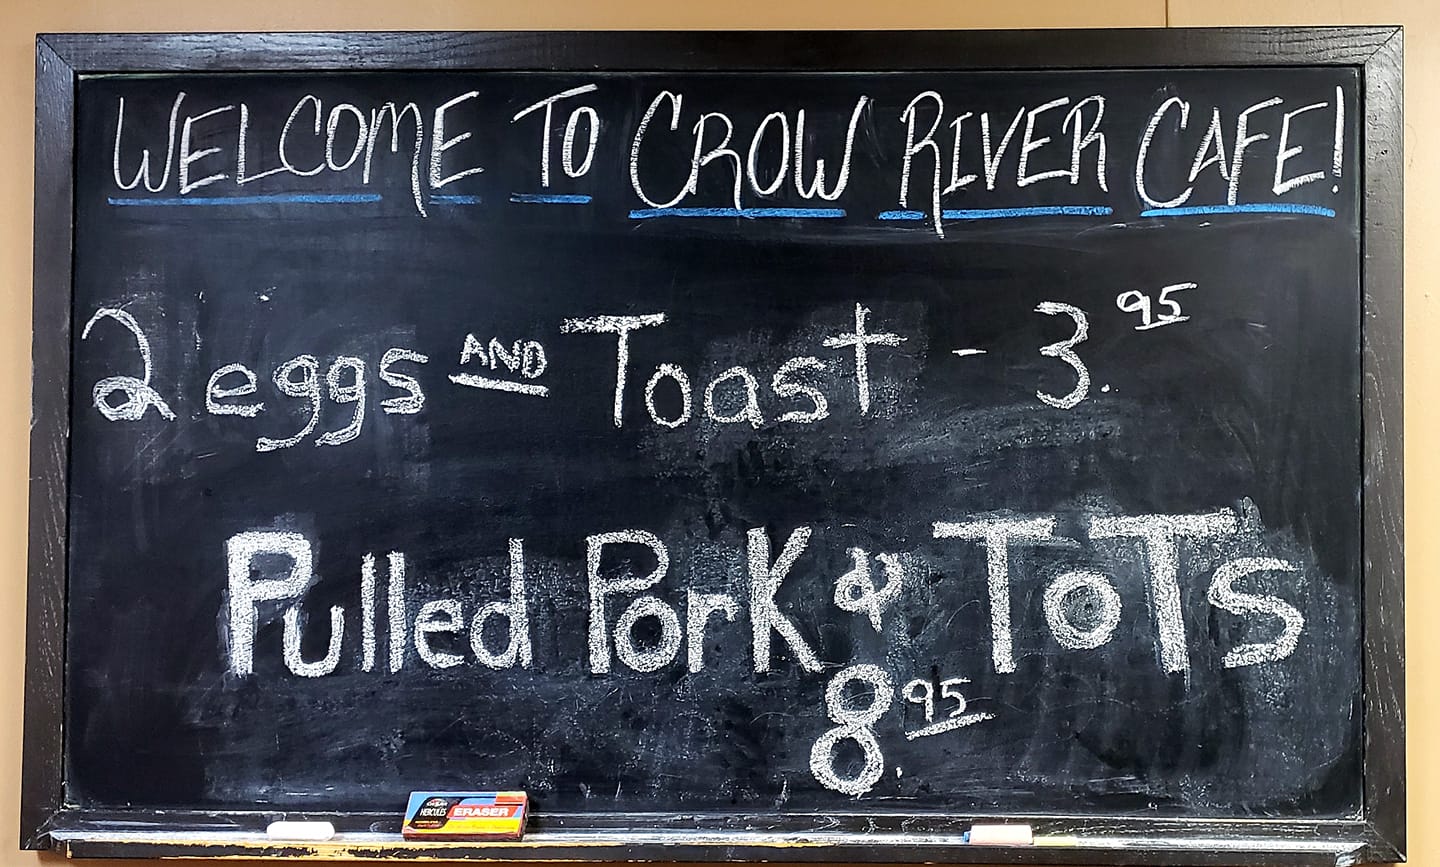 WELCOME TO CROW RIVER CAFE!
2 eggs AND Toast - 3.95
Pulled Pork & ToTs
8.95
HERCULES ERASER